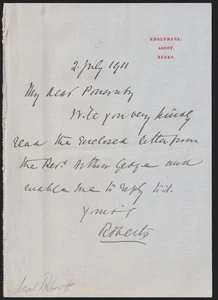 ENGLEMERE,
ASCOT,
BERKS.
2 July 1911
My dear Ponsonby
Will you very kindly
read the enclosed letter from
the Revd. Arthur George and
enable me to reply to it.
Yours
Roberts